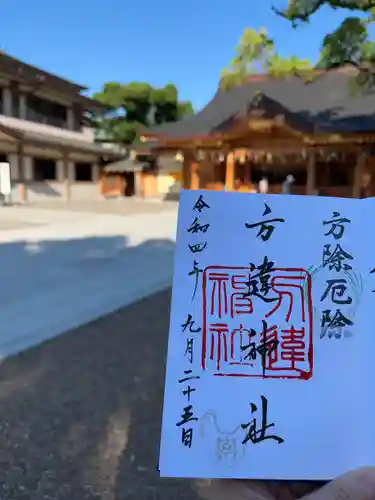 方除厄除
方違神社
方違神社
令和四年九月二十五日